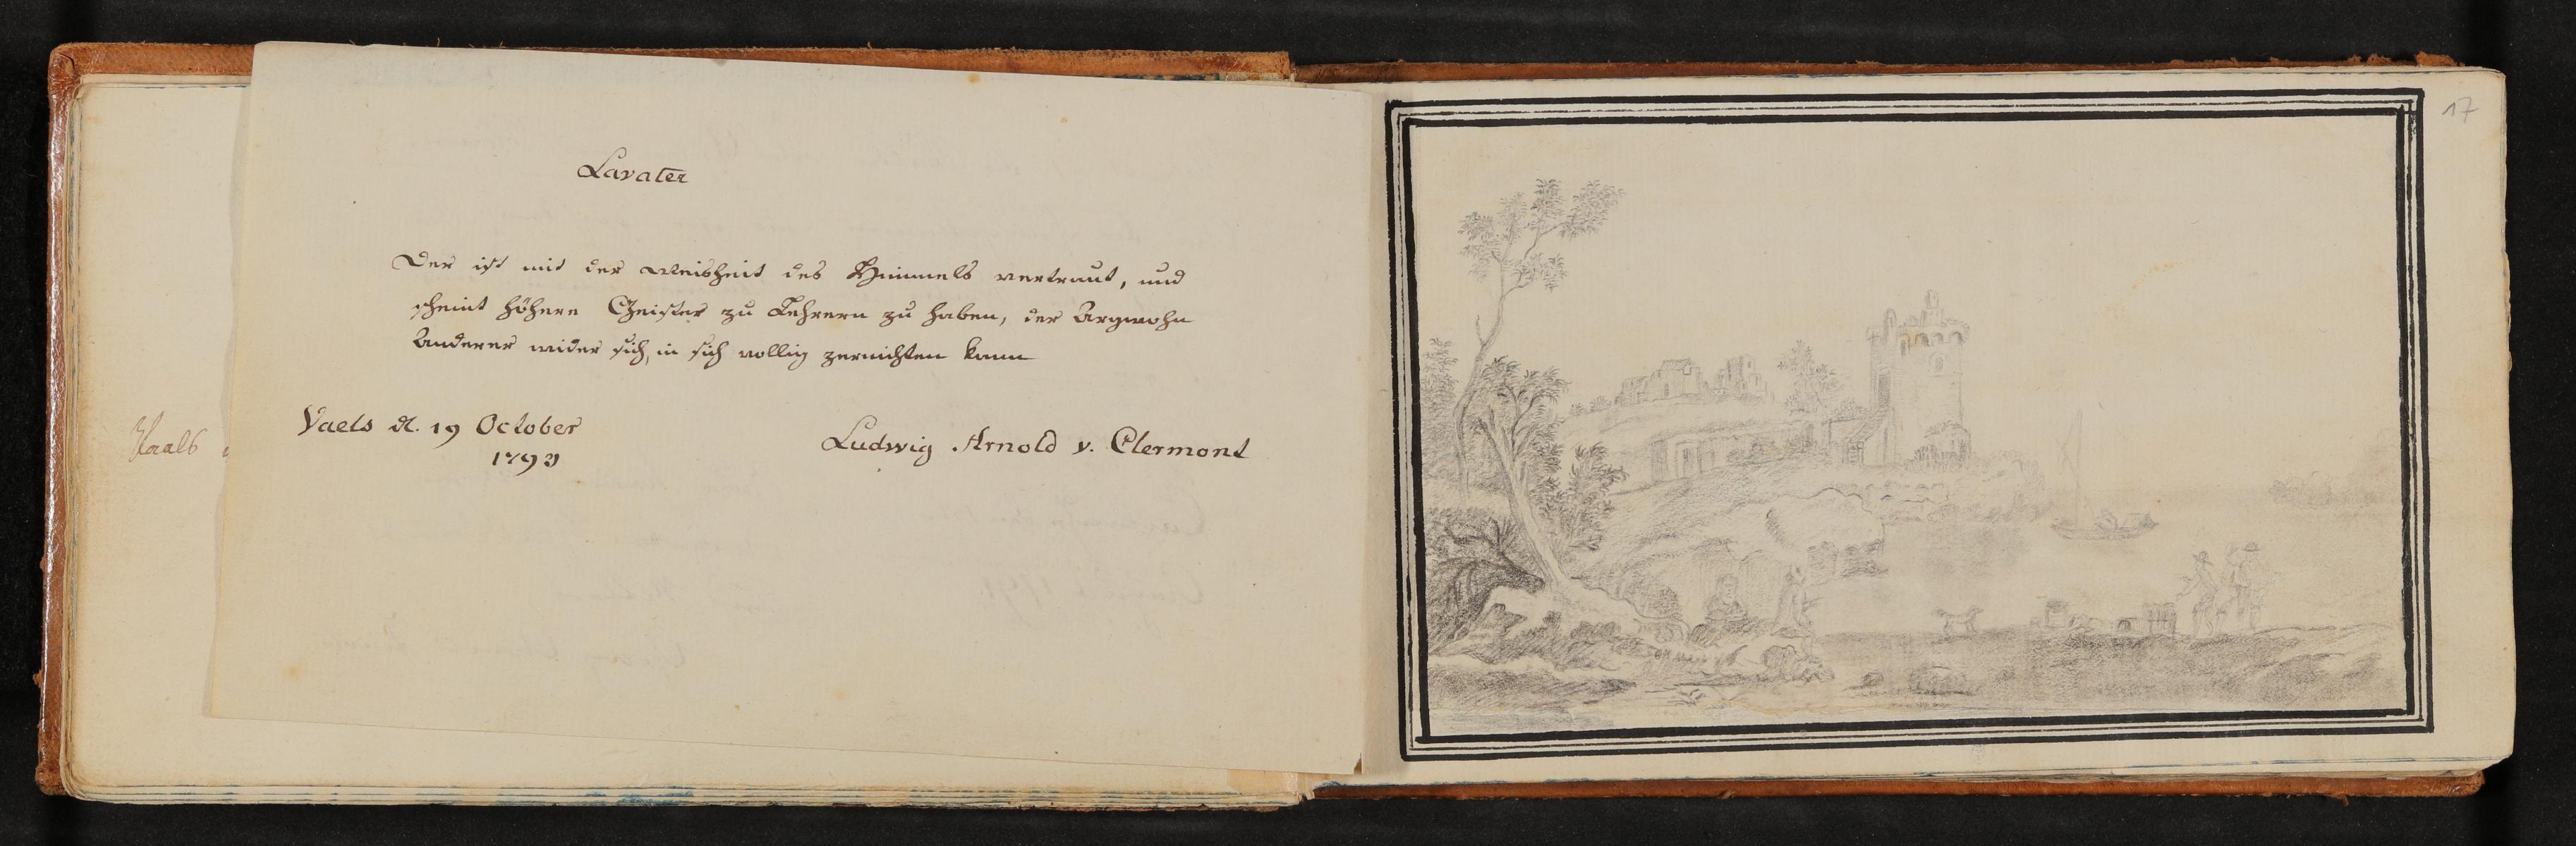 Lavater
Der ist mit der Weisheit des Himmels vertraut, und
scheint höhere Geister zu Lehrern zu haben, der Argwohn
Anderer wider sich, in sich vollig zernichten kann
Vaels d. 19 October
1793
Ludwig Arnold v. Clermont
Vaals
17